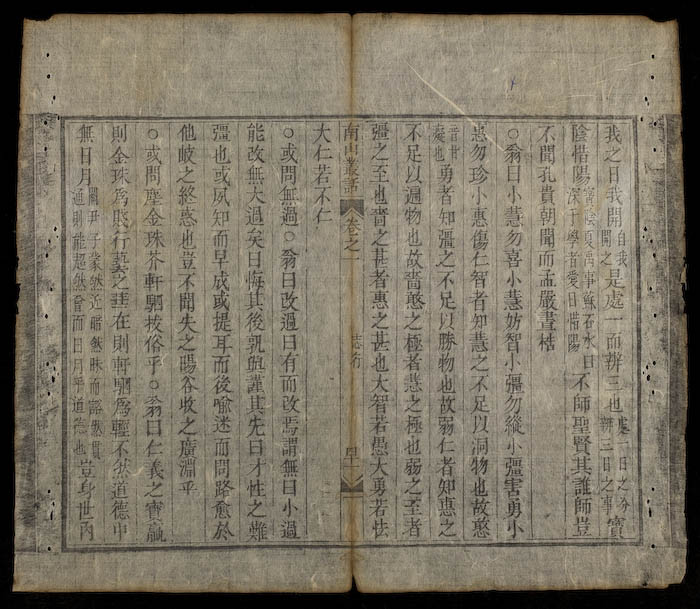 我之日我開自我開之是處一而辨三也處一日之分辨三日之事寶
陰惜陽寶陰夏禹事蘇石水曰深于學者愛日惜陽不師聖賢其誰師豈
不聞孔貴朝聞而孟嚴晝梏
○翁曰小慧勿喜小慧妨智小彊勿縱小彊害勇小
惠勿珍小惠傷仁智者知慧之不足以洞物也故憨
勇者知彊之不足以勝物也故弱仁者知惠之
不足以遍物也故嗇憨之極者慧之極也弱之至者
彊之至也嗇之甚者惠之甚也大智若愚大勇若怯
南山叢話 卷之一 志行
大仁若不仁
○或問無過○翁曰改過曰有而改焉謂無曰小過
能改無大過矣曰悔其後孰與謹其先曰才性之難
彊也或夙知而早成或提耳而後喻迷而問路愈於
他岐之終惑也豈不聞失之暘谷收之廣淵乎
○或問塵金珠芥軒駟拔俗乎○翁曰仁義之寶贏
則金珠爲賤行藝之珪在則軒駟爲輕不然道德中
無日月關尹子蒙然近然昧而然貫通則雖超然會而日月乎道海也豈身世內